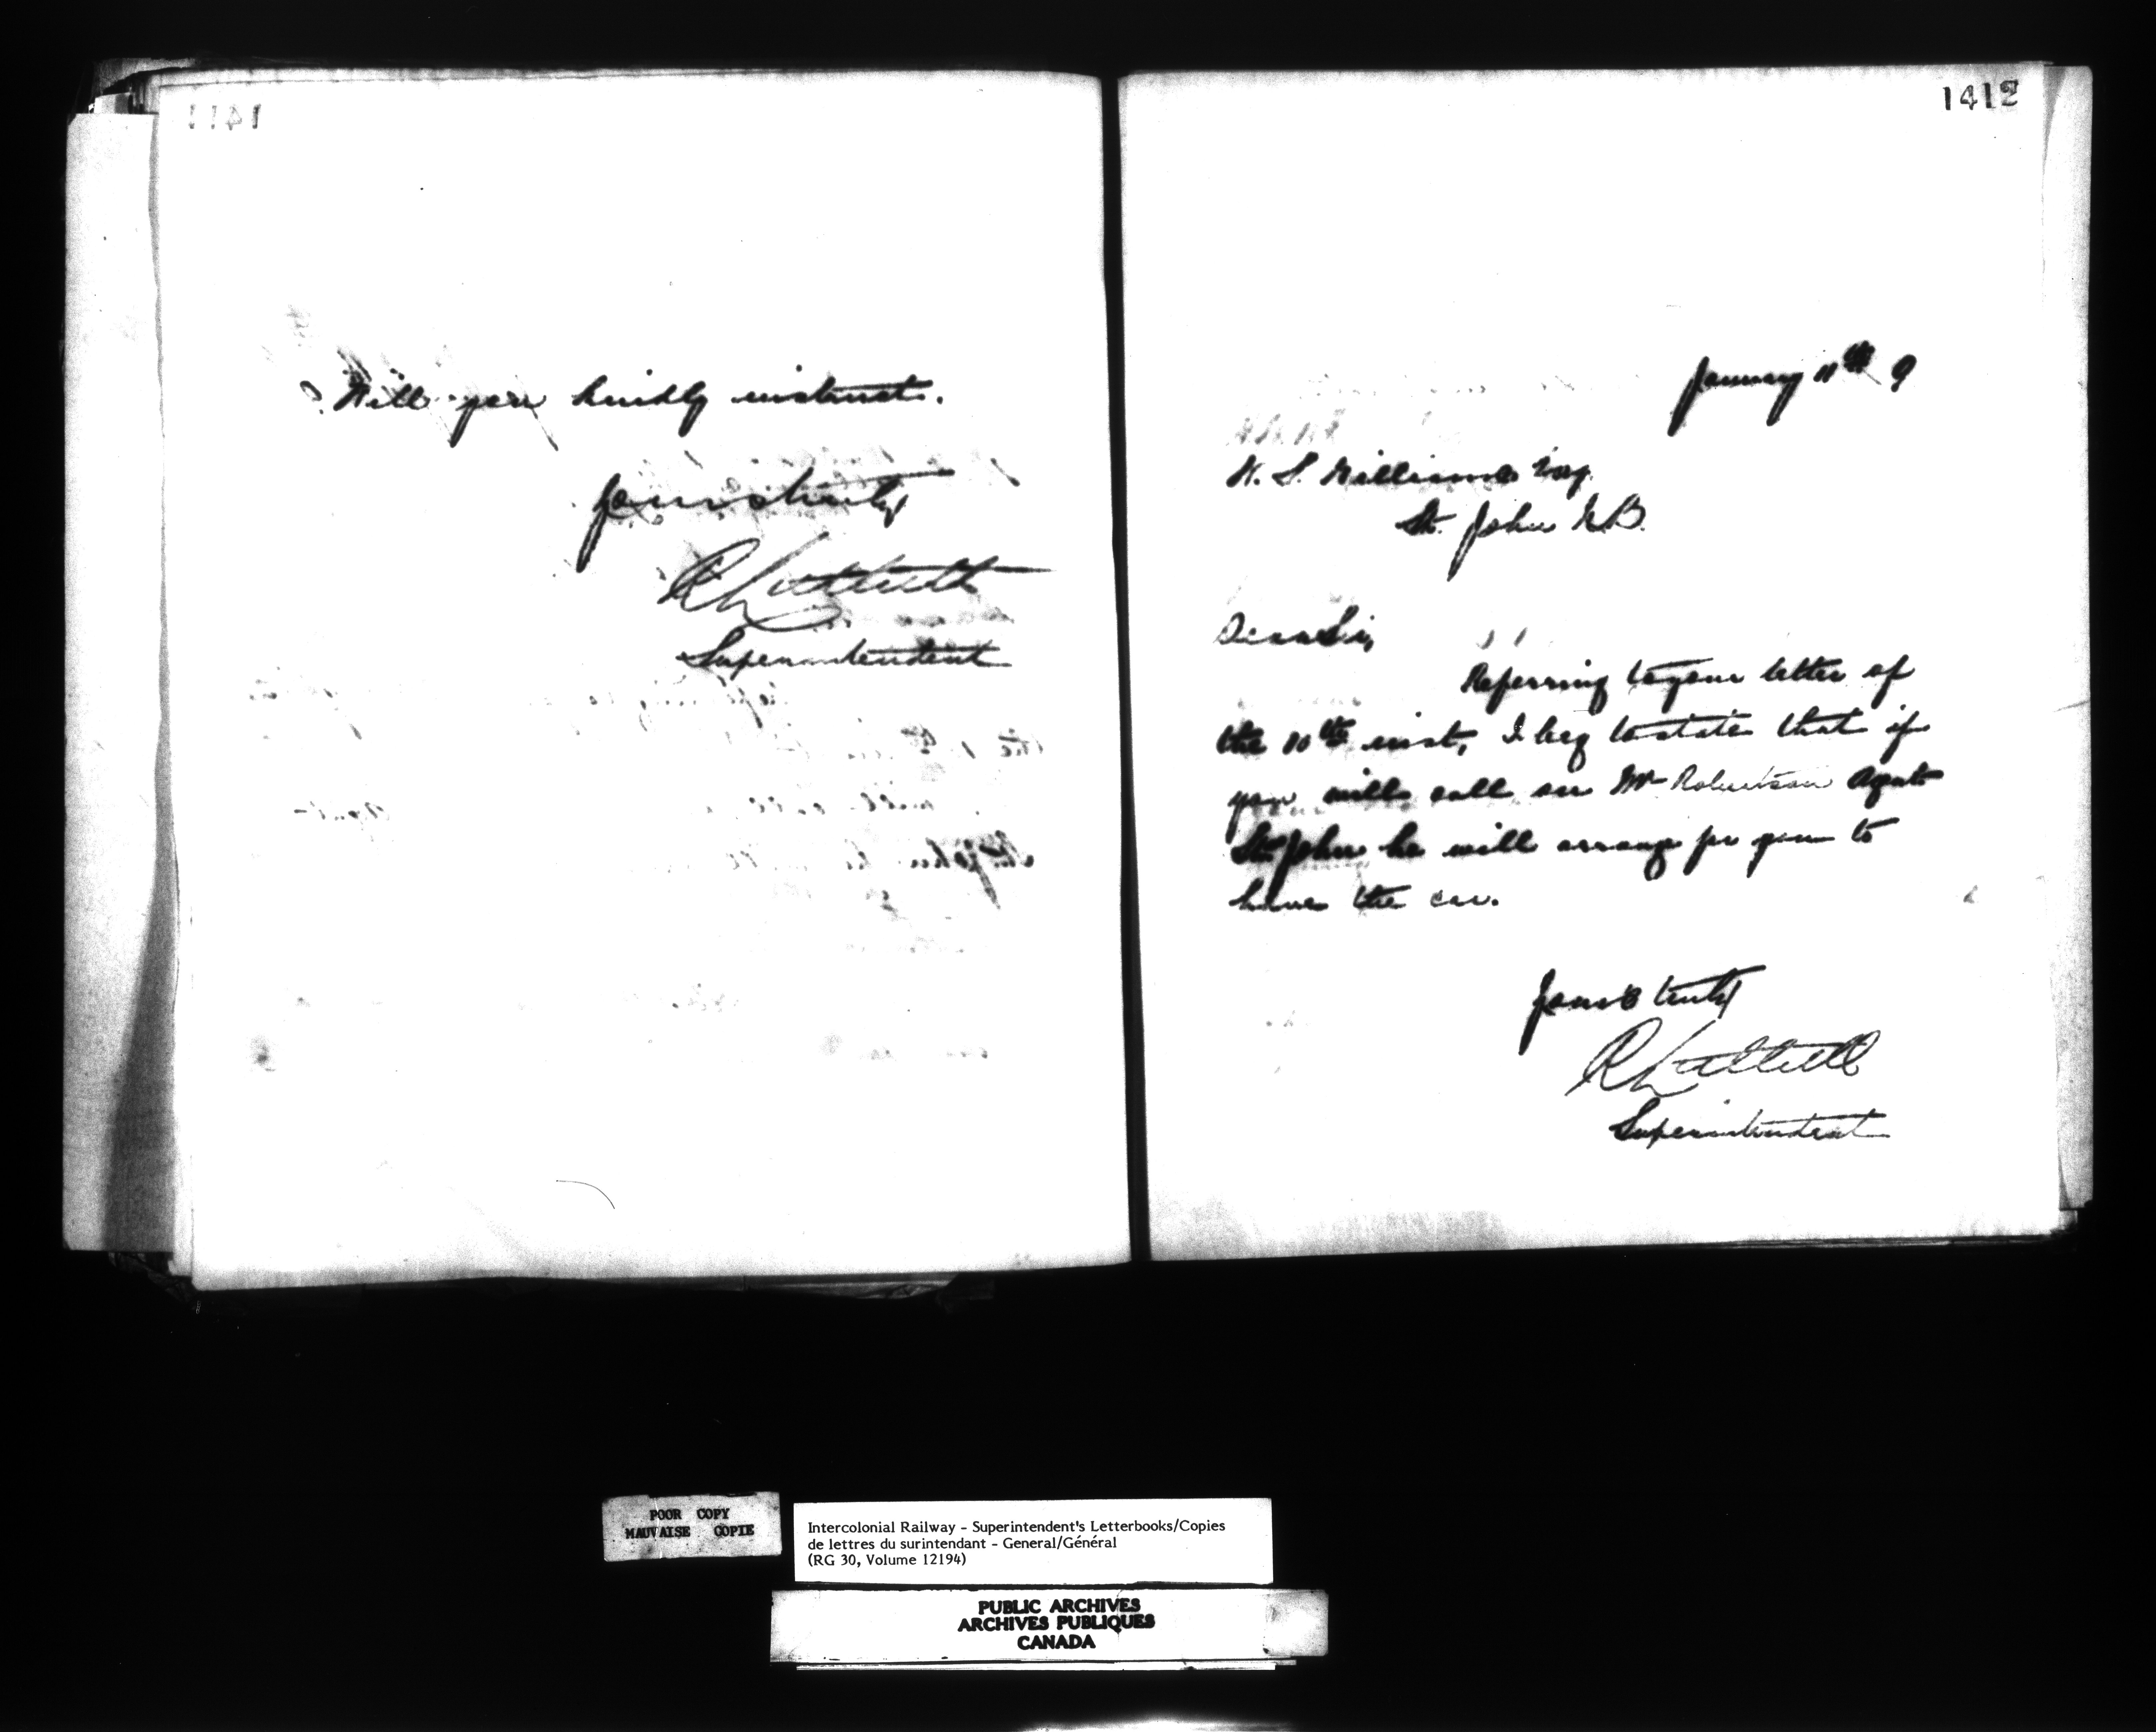 1411
Will you kindly instruct.
Yours truly
Superintendent
1412
January 11th 9
W. S. Williams Esq.
St. John N.B.
Dear Sir,
Referring to your letter of
the 10th inst, I beg to state that if
you will call on Mr Robertson Agent
St. John he will arrange for you to
have the car.
Yours truly
Superintendent
POOR COPY
MAUVAISE COPIE
Intercolonial Railway - Superintendent's Letterbooks/Copies
de lettres du surintendant - General/Général
(RG 30, Volume 12194)
PUBLIC ARCHIVES
ARCHIVES PUBLIQUES
CANADA